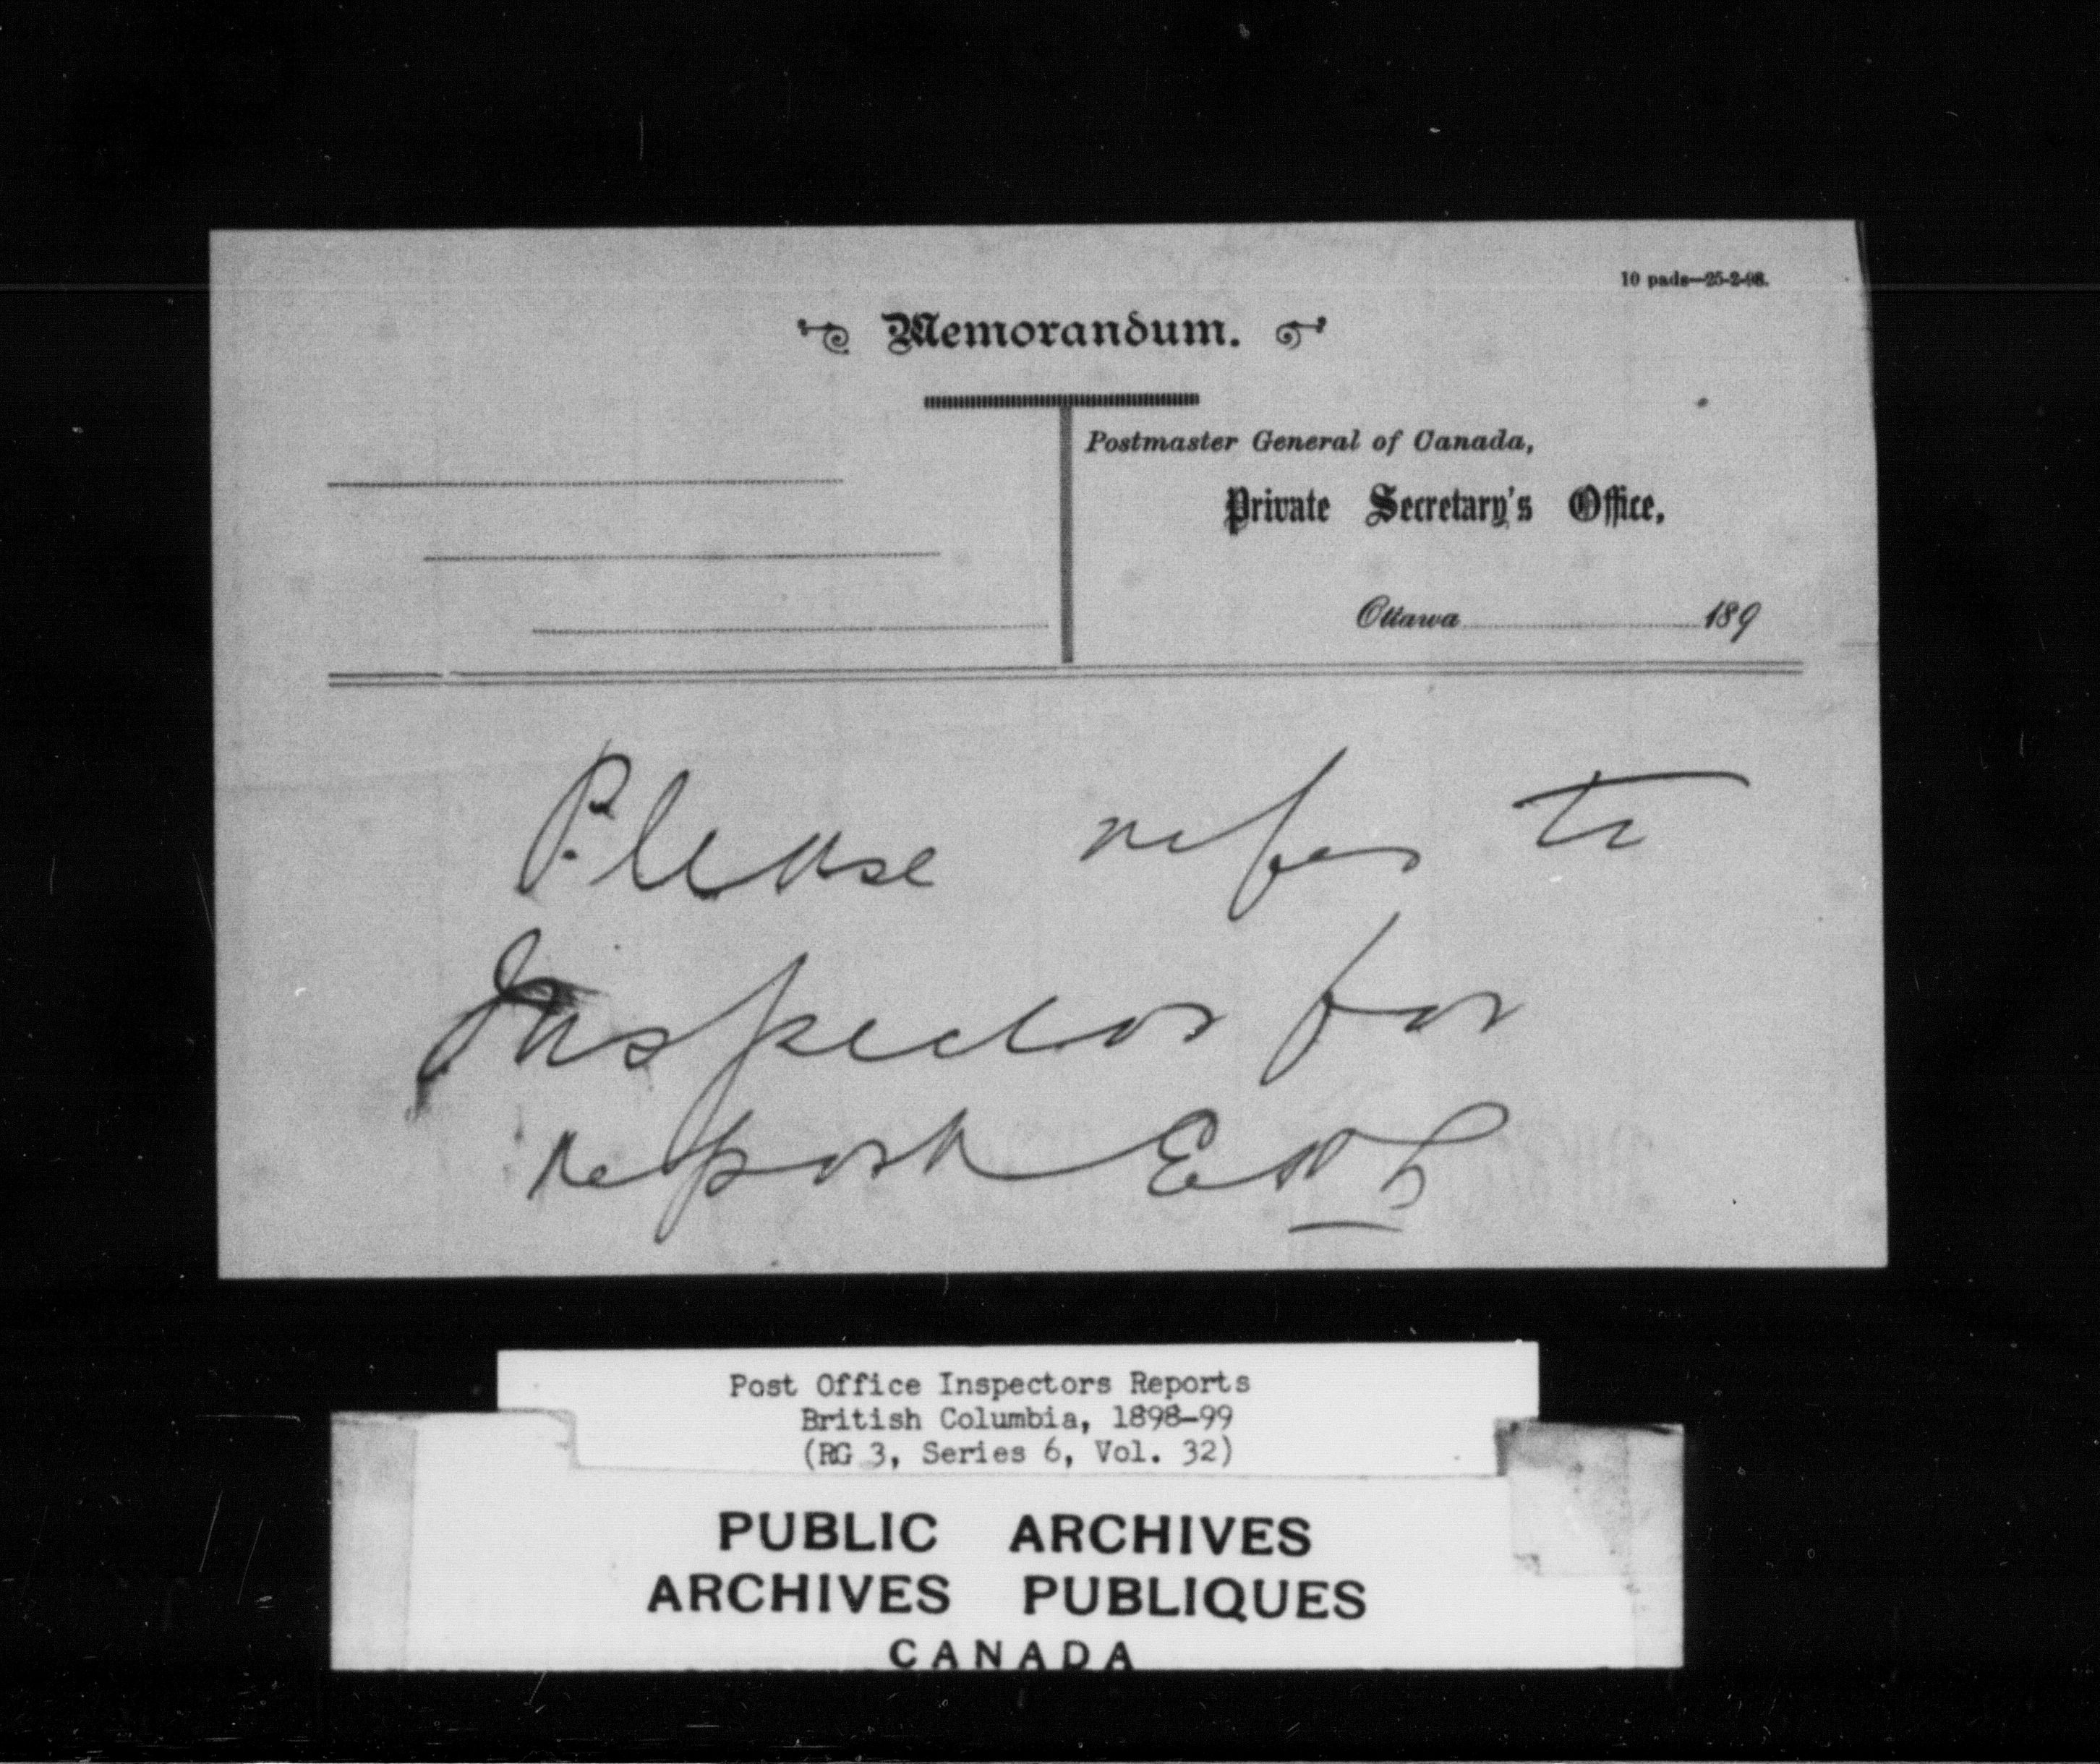 10 pads—25-2-98.
Memorandum.
Postmaster General of Canada,
Private Secretary's Office,
Ottawa 189
Please refer to
Inspector for
report
Post Office Inspectors Reports
British Columbia, 1898-99
(RG 3, Series 6, Vol. 32)
PUBLIC ARCHIVES
ARCHIVES PUBLIQUES
CANADA